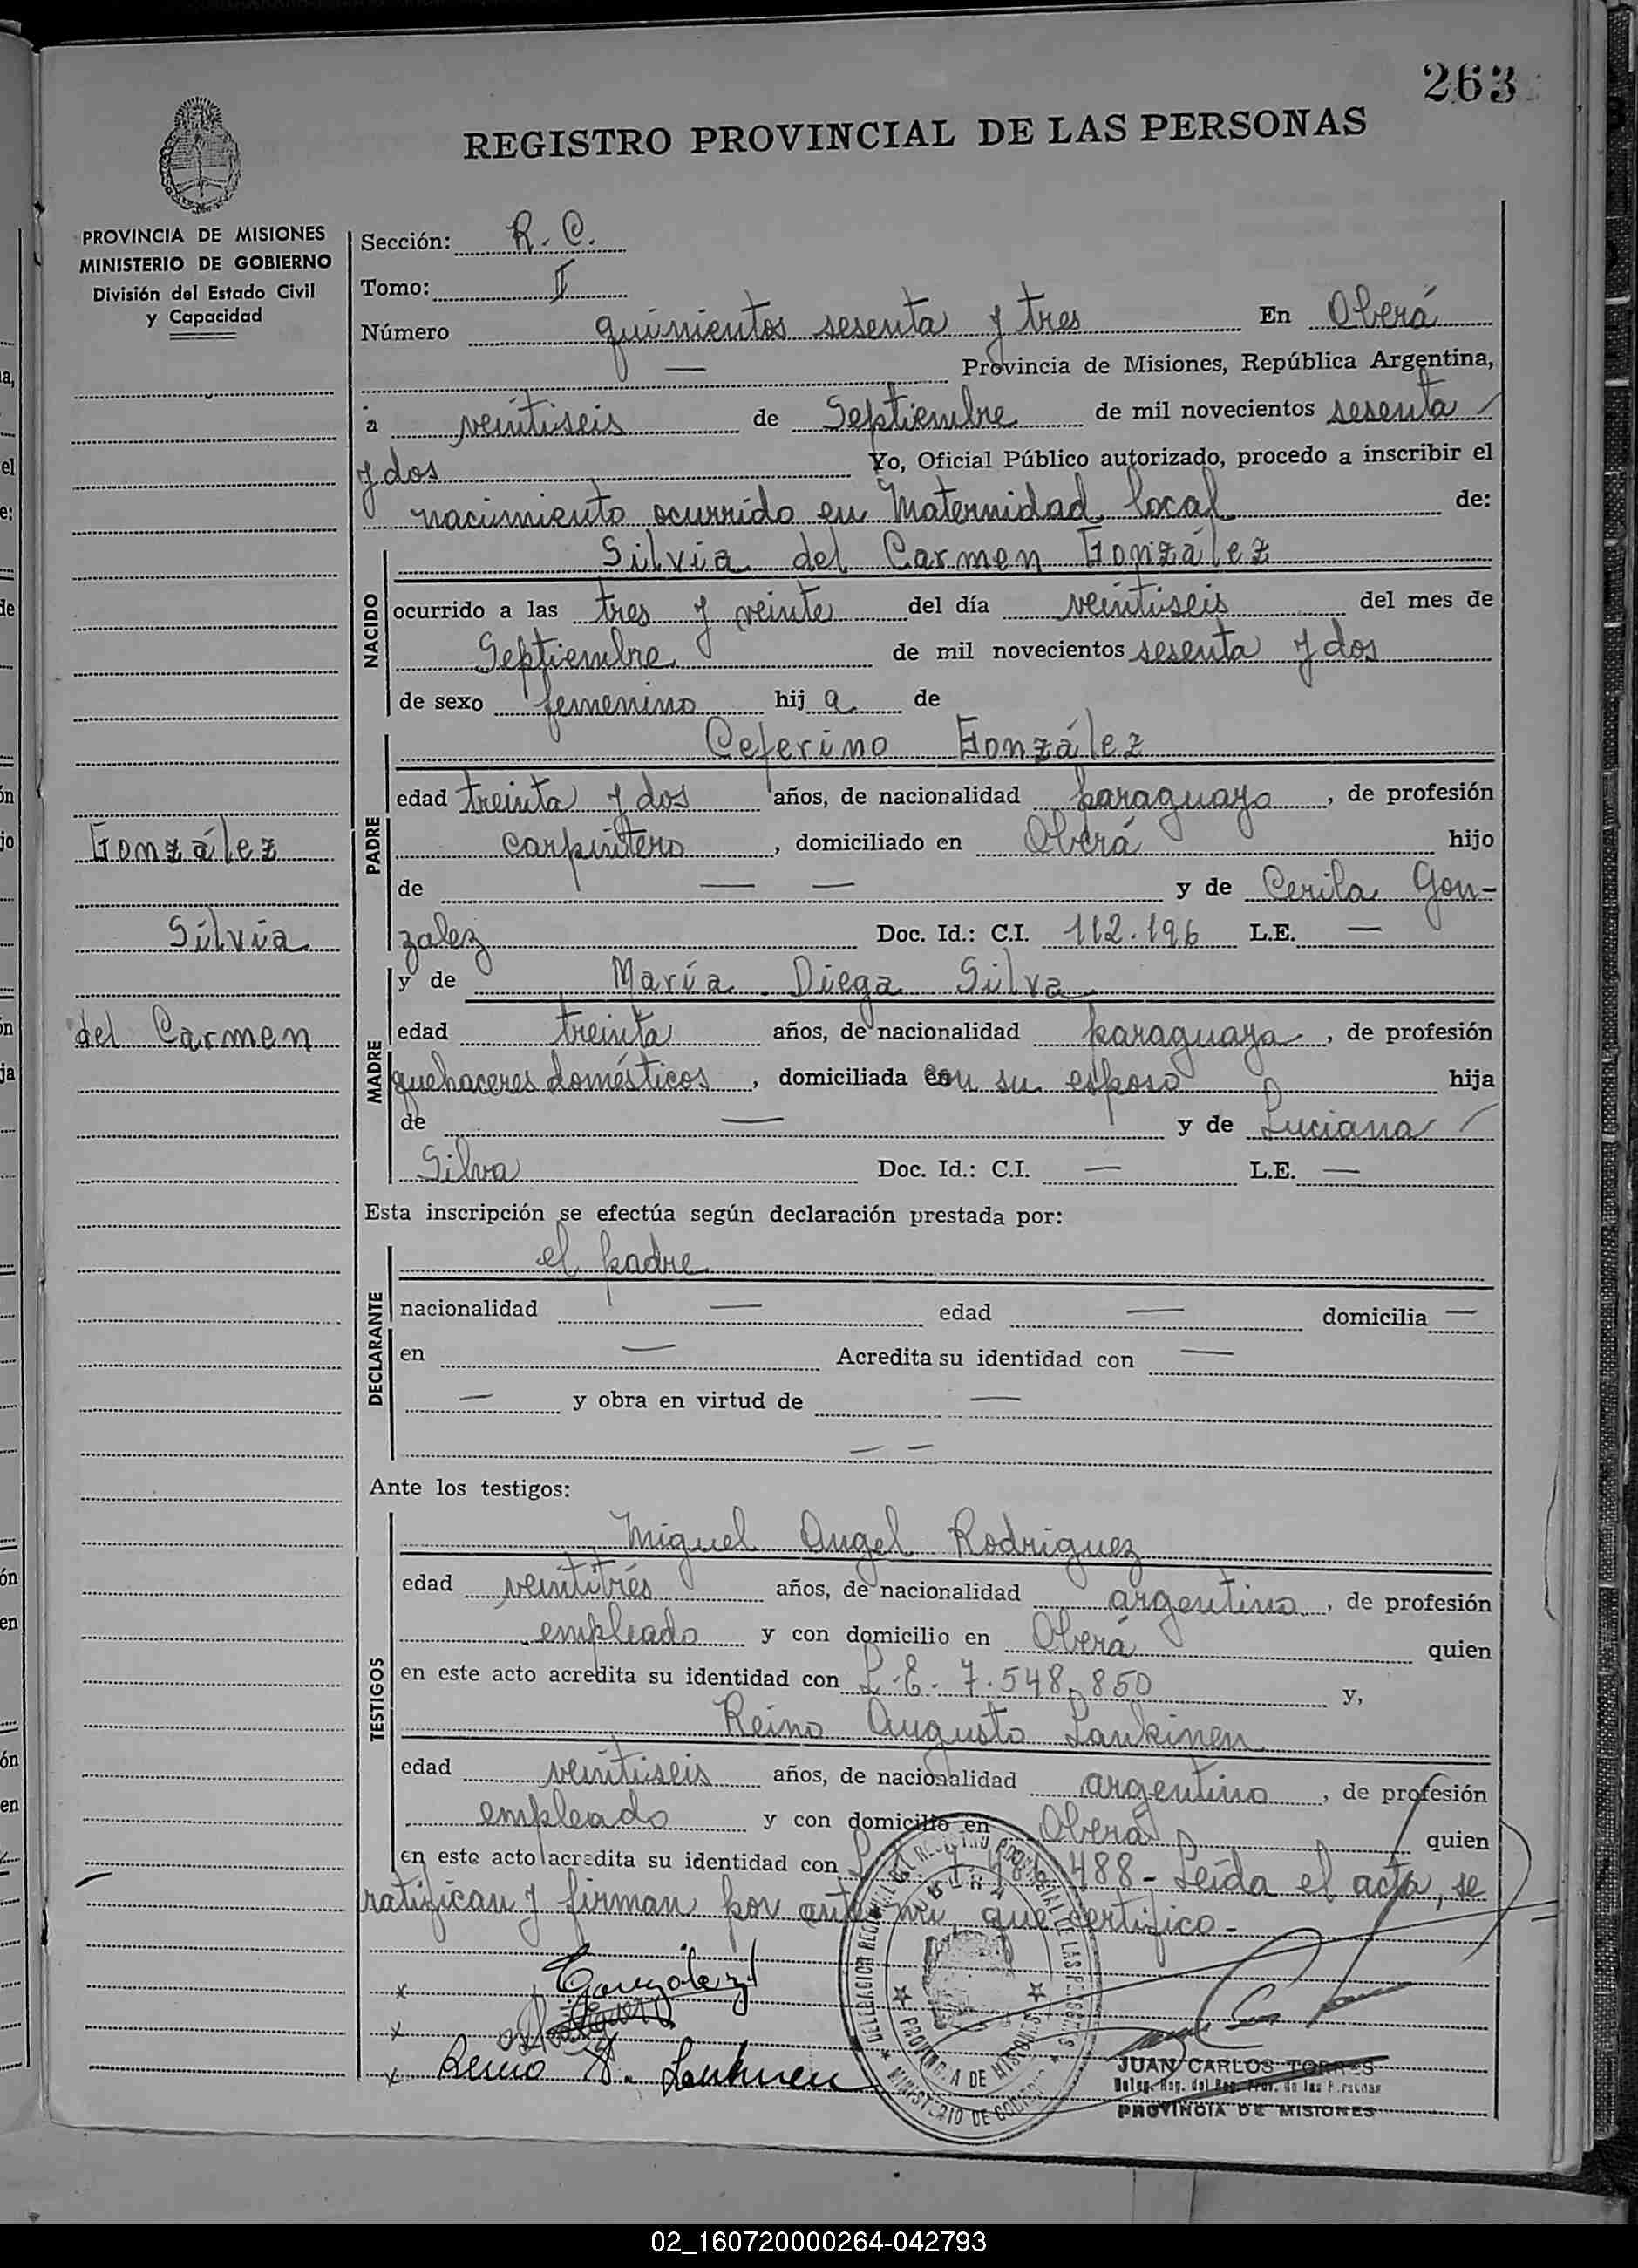 263
REGISTRO PROVINCIAL DE LAS PERSONAS
PROVINCIA DE MISIONES
MINISTERIO DE GOBIERNO
División del Estado Civil
y Capacidad
González
Silvia
del Carmen
Sección: R. C.
Tomo: II
Número quinientos sesenta y tres En Oberá
— Provincia de Misiones, República Argentina,
a veintiseis de Septiembre de mil novecientos sesenta
y dos Yo, Oficial Público autorizado, procedo a inscribir el
nacimiento ocurrido en Maternidad local de:
Silvia del Carmen González
NACIDO
ocurrido a las tres y veinte del día veintiseis del mes de
Septiembre de mil novecientos sesenta y dos
de sexo femenino hij a de
Ceferino González
PADRE
edad treinta y dos años, de nacionalidad paraguayo, de profesión
carpintero, domiciliado en Oberá hijo
de — — y de Cerila Gon-
zalez Doc. Id.: C.I. 112.196 L.E. —
y de María Diega Silva
MADRE
edad treinta años, de nacionalidad paraguaya, de profesión
quehaceres domésticos, domiciliada con su esposo hija
de — y de Luciana
Silva Doc. Id.: C.I. — L.E. —
Esta inscripción se efectúa según declaración prestada por:
el padre
DECLARANTE
nacionalidad — edad — domicilia —
en — Acredita su identidad con —
— y obra en virtud de —
— —
Ante los testigos:
Miguel Angel Rodriguez
TESTIGOS
edad veintitrés años, de nacionalidad argentino, de profesión
empleado y con domicilio en Oberá quien
en este acto acredita su identidad con L.E. 7.548.850 y,
Reino Augusto Laukinen
edad veintiseis años, de nacionalidad argentino, de profesión
empleado y con domicilio en Oberá quien
en este acto acredita su identidad con 488 - Leída el acta, se
ratifican y firman por ante mi, que certifico -
x González
x
x Reino A. Laukinen
DELEGACION REGIONAL DEL REGISTRO PROVINCIAL DE LAS PERSONAS
PROVINCIA DE MISIONES
MINISTERIO DE GOBIERNO
JUAN CARLOS TORRES
Deleg. Reg. del Reg. Prov. de las Personas
PROVINCIA DE MISIONES
02_160720000264-042793